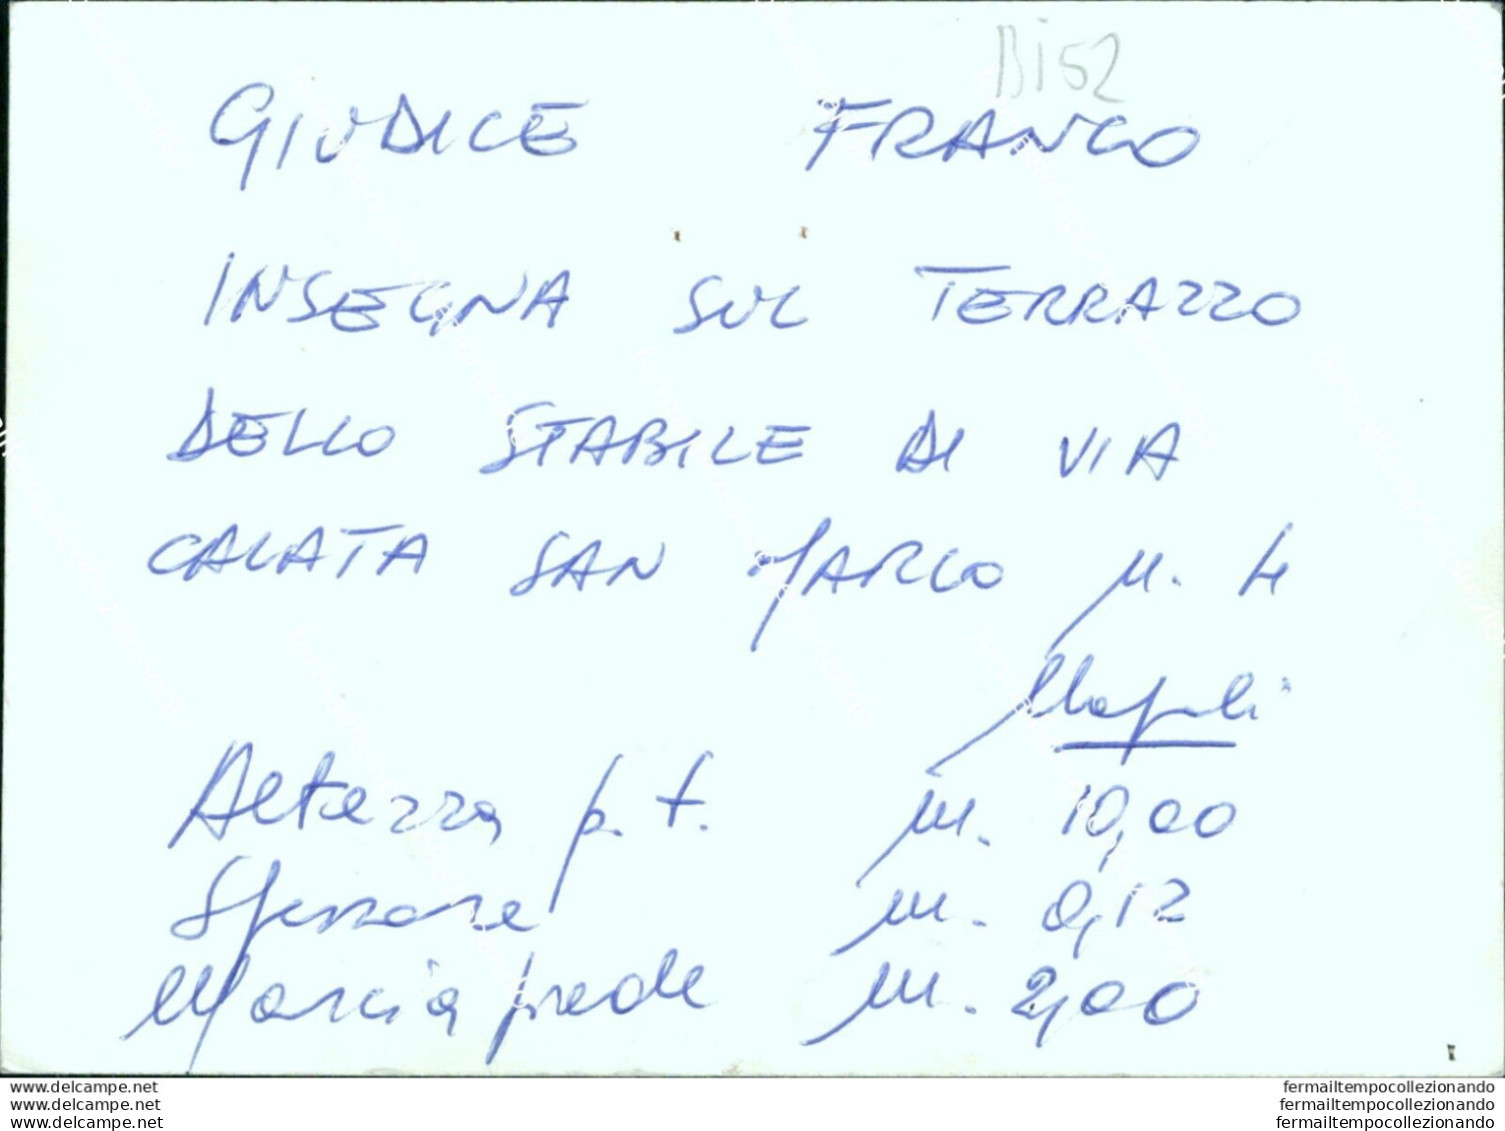 Bi52
GIUDICE FRANCO
INSEGNA SUL TERRAZZO
DELLO STABILE DI VIA
CALATA SAN MARCO n. 4
Napoli
Altezza p.t. m. 10,00
Spessore m. 0,12
Marciapiede m. 2,00
www.delcampe.net
www.delcampe.net
www.delcampe.net
fermailtempocollezionando
fermailtempocollezionando
fermailtempocollezionando